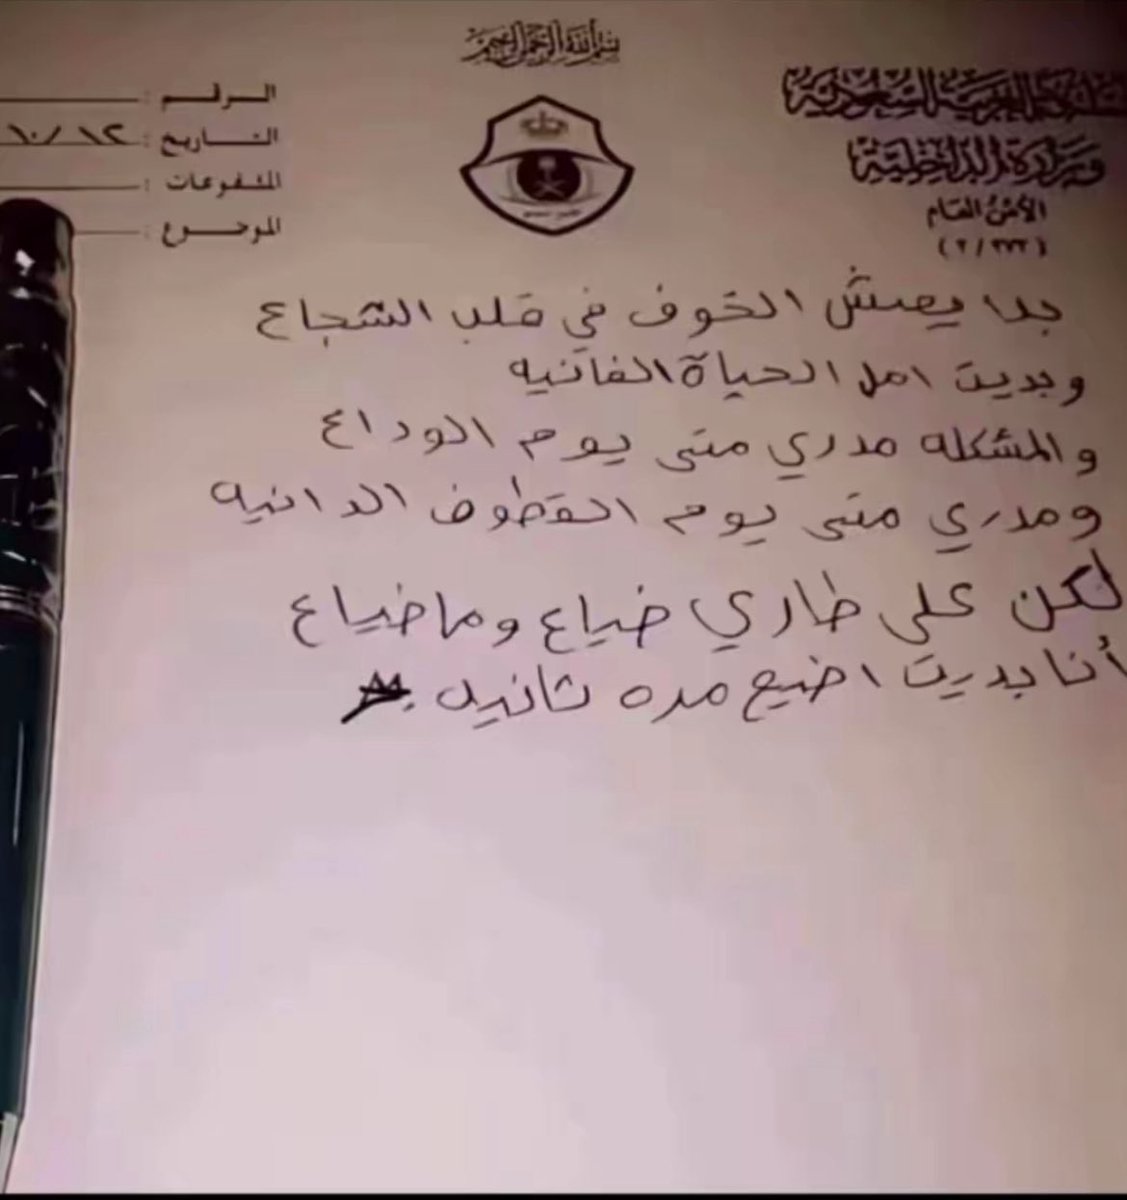 بسم الله الرحمن الرحيم
المملكة العربية السعودية
وزارة الداخلية
الأمن العام
(٢/٣٢٢)
الرقم :
التاريخ : ١٠/١٢
المشفوعات :
الموضوع :
بدا يعشش الخوف في قلب الشجاع
وبديت امل الحياة الفانيه
والمشكله مدري متى يوم الوداع
ومدري متى يوم القطوف الدانيه
لكن على طاري ضياع وماضياع
أنا بديت اضيع مده ثانيه